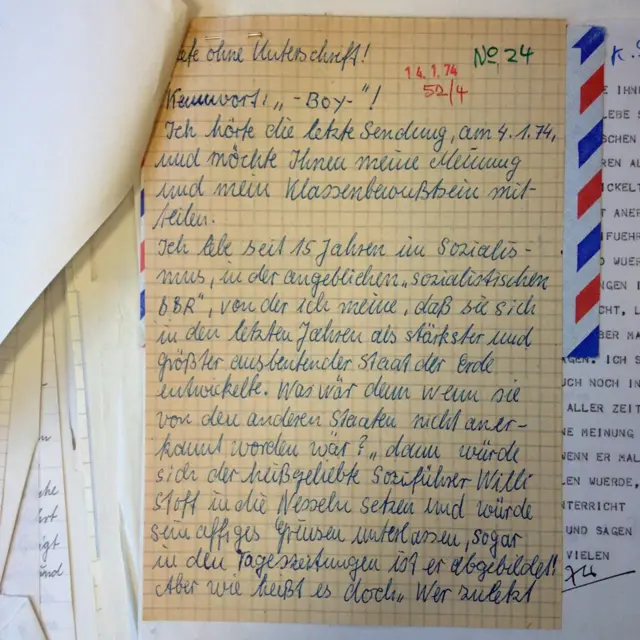 ohne Unterschrift!
No 24
14.1.74
52/4
Kennwort: „-Boy-"!
Ich hörte die letzte Sendung, am 4.1.74,
und möchte Ihnen meine Meinung
und mein Klassenbewußtsein mit-
teilen.
Ich lebe seit 15 Jahren im Sozialis-
mus, in der angeblichen „sozialistischen
DDR", von der ich meine, daß sie sich
in den letzten Jahren als stärkster und
größter ausbeutender Staat der Erde
entwickelte. Was wär denn wenn sie
von den anderen Staaten nicht aner-
kannt worden wär? „dann würde
sich der heißgeliebte Soziführer Willi
Stoff in die Nesseln setzen und würde
sein affiges Grinsen unterlassen, sogar
in den Tageszeitungen ist er abgebildet!
Aber wie heißt es doch „Wer zuletzt
K.
E IHN
LEBE S
SCHEN
REN AL
ICKELT
T ANER
FUEHR
WUER
NGEN I
CHT, L
BER MA
AGEN. ICH S
UCH NOCH IN
ALLER ZEIT
NE MEINUNG
WENN ER MAL
LEN WUERDE,
NTERRICHT
UND SAGEN
VIELEN
74